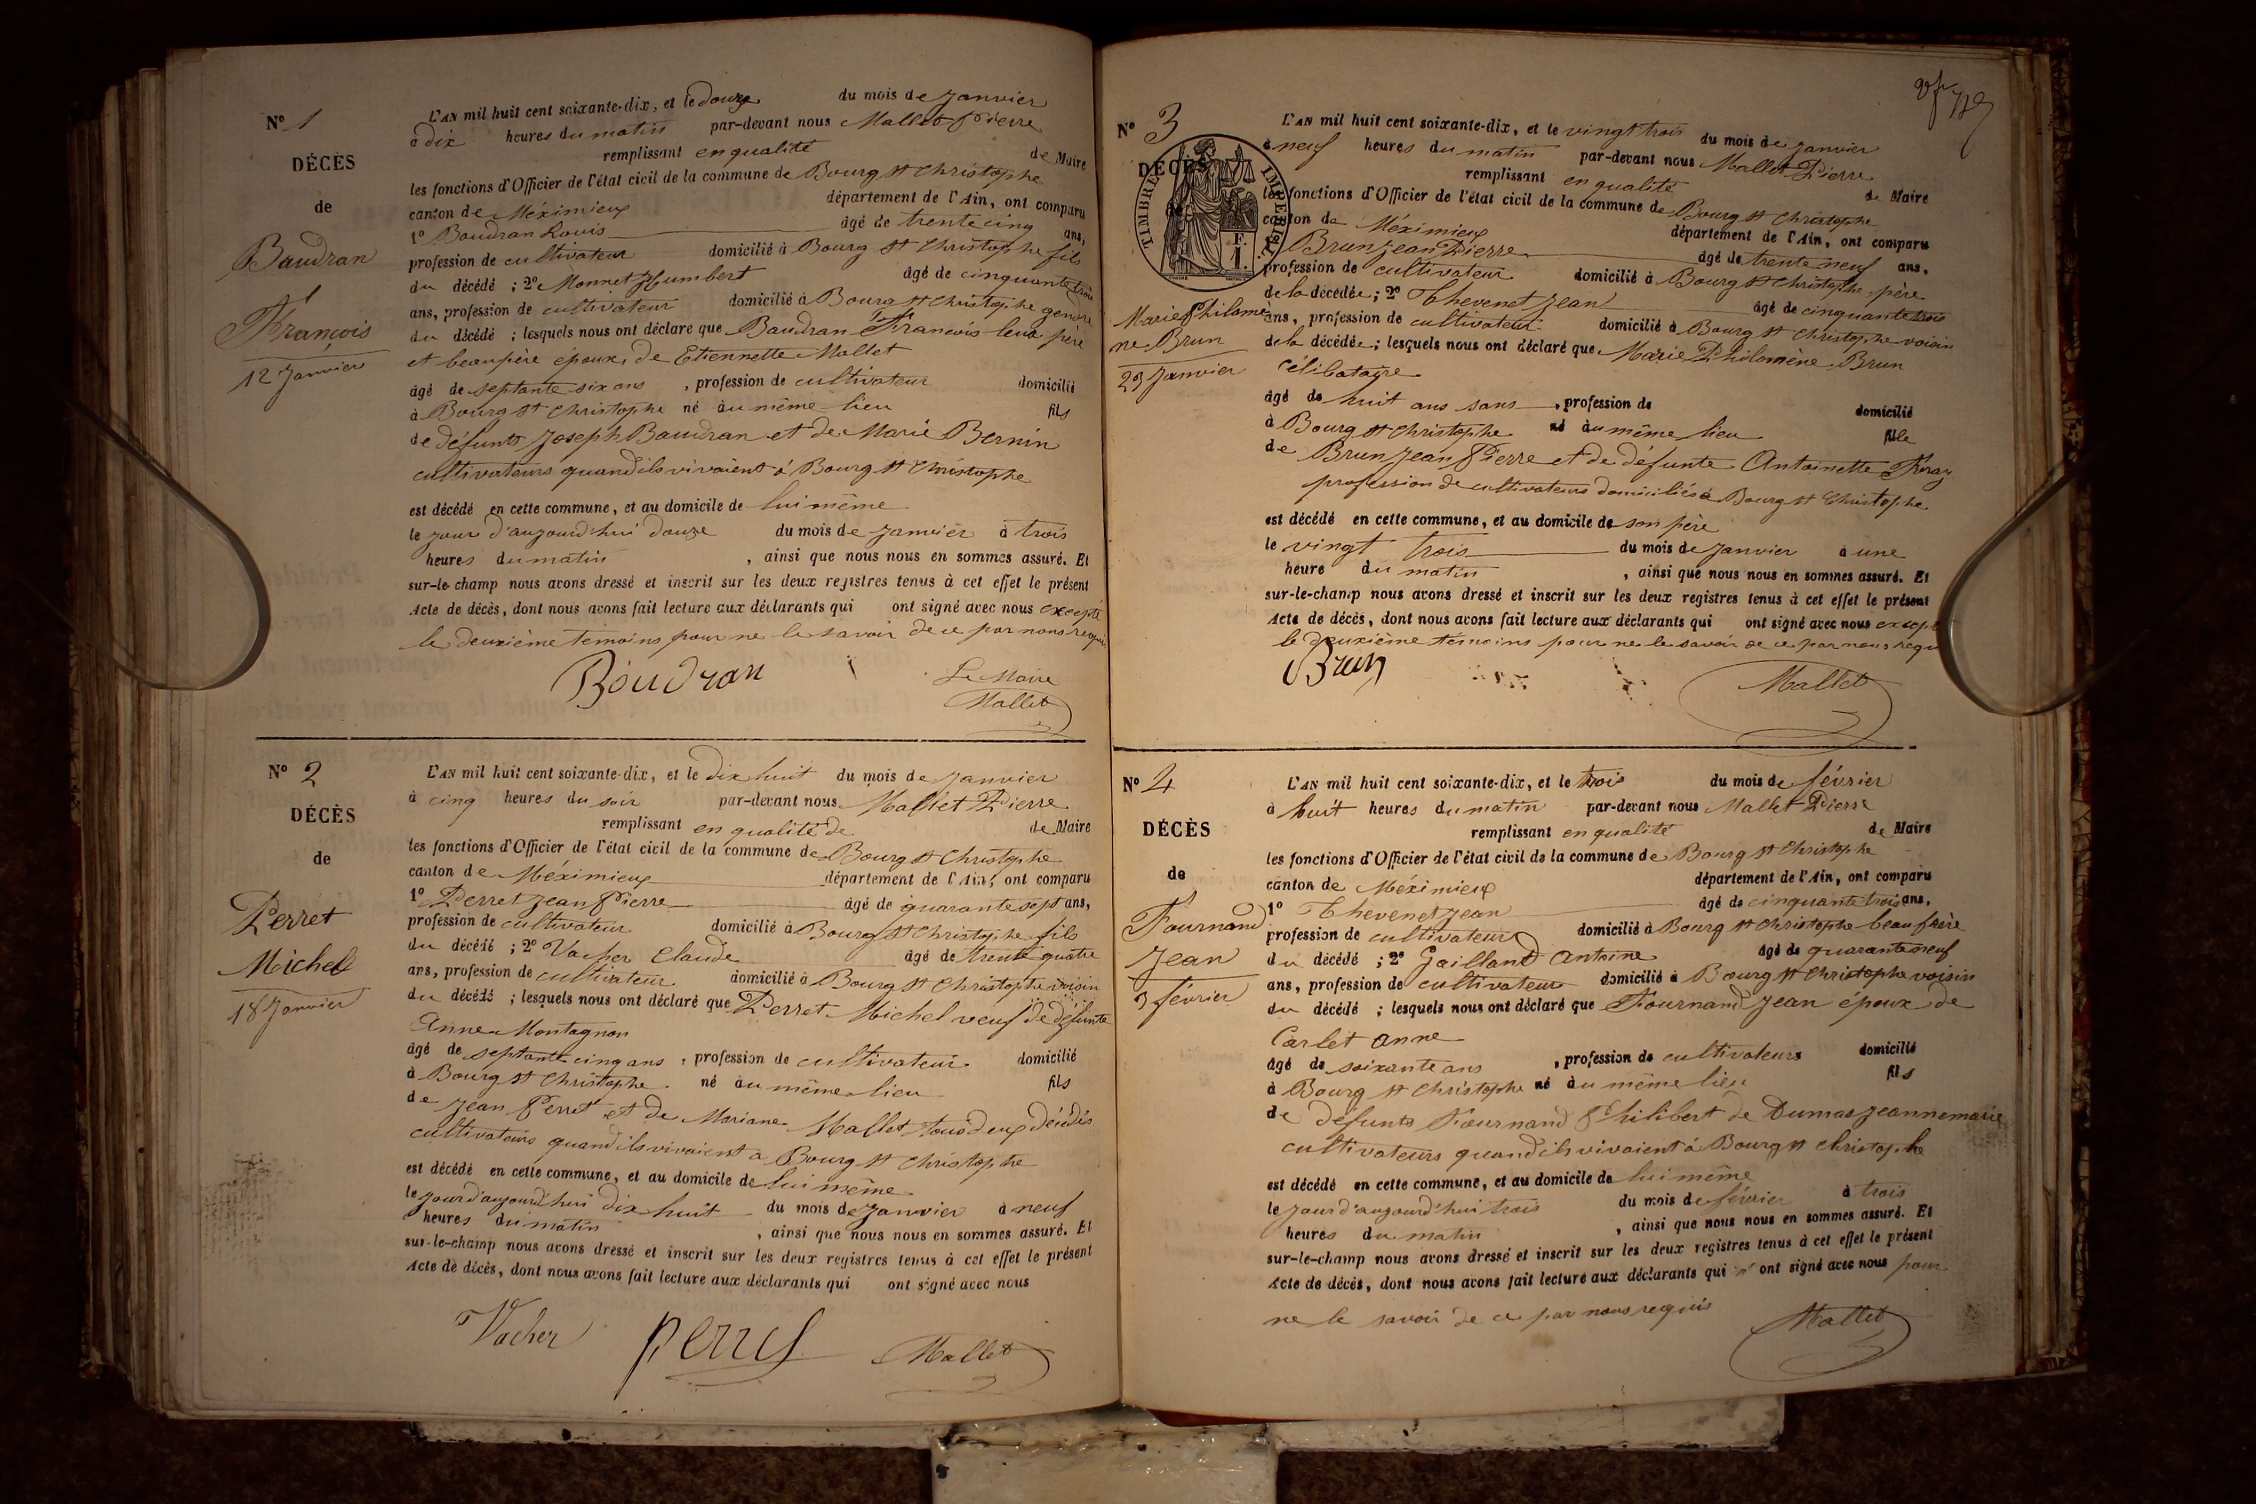 N° 1
DÉCÈS
de
Baudran
François
12 Janvier
L'AN mil huit cent soixante-dix, et le douze du mois de Janvier
à dix heures du matin par-devant nous Mallet Pierre
remplissant en qualité de Maire
les fonctions d'Officier de l'état civil de la commune de Bourg St Christophe
canton de Méximieux département de l'Ain, ont comparu
1° Baudran Louis âgé de trente cinq ans,
profession de cultivateur domicilié à Bourg St Christophe fils
du décédé ; 2° Monnet Humbert âgé de cinquante trois
ans, profession de cultivateur domicilié à Bourg St Christophe gendre
du décédé ; lesquels nous ont déclaré que Baudran François leur père
et beaupère époux de Etiennette Mallet
âgé de septante six ans , profession de cultivateur domicilié
à Bourg St Christophe né au même lieu fils
de défunts Joseph Baudran et de Marie Bernin
cultivateurs quand ils vivaient à Bourg St Christophe
est décédé en cette commune, et au domicile de lui même
le jour d'aujourd'hui douze du mois de Janvier à trois
heures du matin , ainsi que nous nous en sommes assuré. Et
sur-le-champ nous avons dressé et inscrit sur les deux registres tenus à cet effet le présent
Acte de décès, dont nous avons fait lecture aux déclarants qui ont signé avec nous excepté
le deuxième temoins pour ne le savoir de ce par nous requis
Boudran
Le Maire
Mallet
N° 2
DÉCÈS
de
Perret
Michel
18 Janvier
L'AN mil huit cent soixante-dix, et le dix huit du mois de Janvier
à cinq heures du soir par-devant nous Mallet Pierre
remplissant en qualité de de Maire
les fonctions d'Officier de l'état civil de la commune de Bourg St Christophe
canton de Méximieux département de l'Ain, ont comparu
1° Perret Jean Pierre âgé de quarante sept ans,
profession de cultivateur domicilié à Bourg St Christophe fils
du décédé ; 2° Vacher Claude âgé de trente quatre
ans, profession de cultivateur domicilié à Bourg St Christophe voisin
du décédé ; lesquels nous ont déclaré que Perret Michel veuf de défunte
Anne Montagnon
âgé de septante cinq ans , profession de cultivateur domicilié
à Bourg St Christophe né au même lieu fils
de Jean Perret et de Mariane Mallet tous deux décédés
cultivateurs quand ils vivaient à Bourg St Christophe
est décédé en cette commune, et au domicile de lui même
le jour d'aujourd'hui dix huit du mois de Janvier à neuf
heures du matin , ainsi que nous nous en sommes assuré. Et
sur-le-champ nous avons dressé et inscrit sur les deux registres tenus à cet effet le présent
Acte de décès, dont nous avons fait lecture aux déclarants qui ont signé avec nous
Vacher Perret Mallet
N° 3
DÉCÈS
de
TIMBRE IMPERIAL
F.
1.
Marie Philomè
ne Brun
23 Janvier
L'AN mil huit cent soixante-dix, et le vingt trois du mois de Janvier
à neuf heures du matin par-devant nous Mallet Pierre
remplissant en qualité de Maire
les fonctions d'Officier de l'état civil de la commune de Bourg St Christophe
canton de Méximieux département de l'Ain, ont comparu
Brun Jean Pierre âgé de trente neuf ans,
profession de cultivateur domicilié à Bourg St Christophe père
de la décédée ; 2° Thevenet Jean âgé de cinquante trois
ans, profession de cultivateur domicilié à Bourg St Christophe voisin
de la décédée ; lesquels nous ont déclaré que Marie Philomène Brun
célibataire
âgé de huit ans sans , profession de domicilié
à Bourg St Christophe né au même lieu fille
de Brun Jean Pierre et de défunte Antoinette
profession de cultivateurs domiciliés à Bourg St Christophe
est décédé en cette commune, et au domicile de son père
le vingt trois du mois de Janvier à une
heure du matin , ainsi que nous nous en sommes assuré. Et
sur-le-champ nous avons dressé et inscrit sur les deux registres tenus à cet effet le présent
Acte de décès, dont nous avons fait lecture aux déclarants qui ont signé avec nous except
le deuxième témoins pour ne le savoir de ce par nous requ
Brun
Mallet
N° 4
DÉCÈS
de
Fournand
Jean
3 février
L'AN mil huit cent soixante-dix, et le trois du mois de février
à huit heures du matin par-devant nous Mallet Pierre
remplissant en qualité de Maire
les fonctions d'Officier de l'état civil de la commune de Bourg St Christophe
canton de Méximieux département de l'Ain, ont comparu
1° Thevenet Jean âgé de cinquante trois ans,
profession de cultivateur domicilié à Bourg St Christophe beau frère
du décédé ; 2° Gailland Antoine âgé de quarante neuf
ans, profession de cultivateur domicilié à Bourg St Christophe voisin
du décédé ; lesquels nous ont déclaré que Fournand Jean époux de
Carlet Anne
âgé de soixante ans , profession de cultivateurs domicilié
à Bourg St Christophe né au même lieu fils
de défunts Fournand Philibert de Dumas Jeanne marie
cultivateurs quand ils vivaient à Bourg St Christophe
est décédé en cette commune, et au domicile de lui même
le jour d'aujourd'hui trois du mois de février à trois
heures du matin , ainsi que nous nous en sommes assuré. Et
sur-le-champ nous avons dressé et inscrit sur les deux registres tenus à cet effet le présent
Acte de décès, dont nous avons fait lecture aux déclarants qui n' ont signé avec nous pour
ne le savoir de ce par nous requis
Mallet